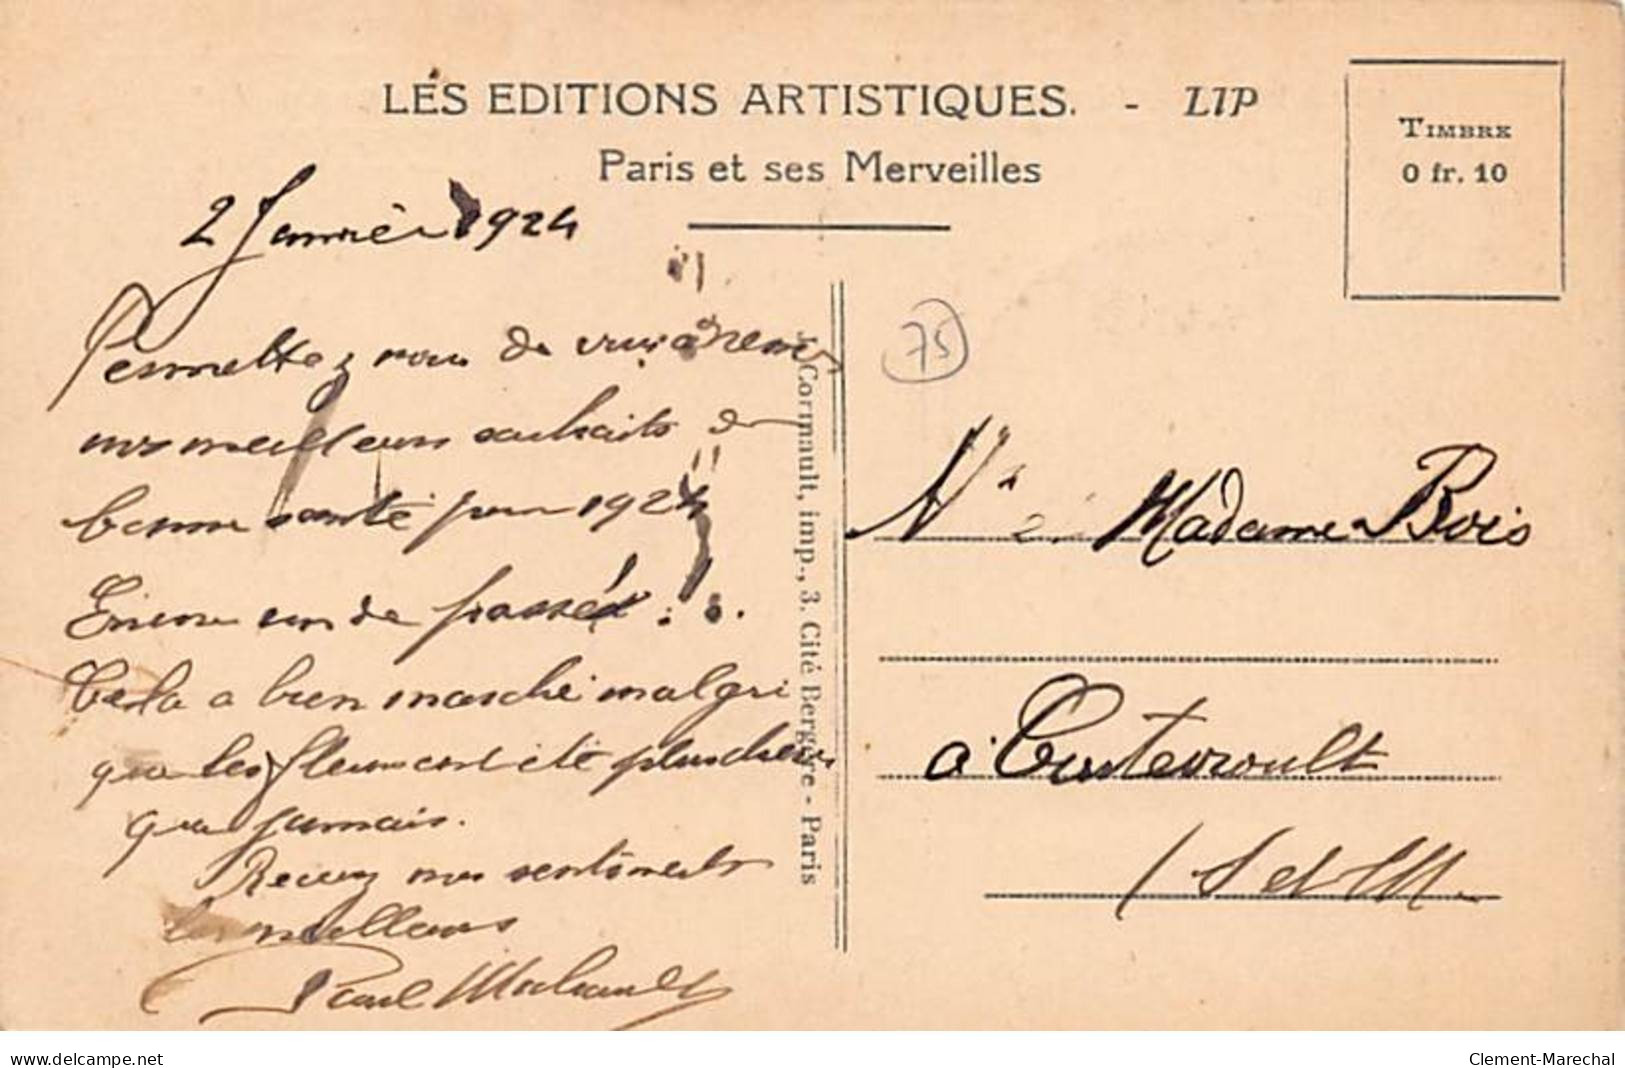 LES EDITIONS ARTISTIQUES. - LIP
Paris et ses Merveilles
TIMBRE
0 fr. 10
2 Janvier 1924
Permettez nous de vous
nos meilleurs souhaits de
bonne santé pour 1924
Encore un de passé
Cela a bien marché malgré
que les fleurs ont été plus chères
que jamais.
Recevez nos sentiments
les meilleurs
Paul
Cormault, imp., 3. Cité Bergère - Paris
75
Madame Bois
à Coutevroult
(S et M
www.delcampe.net
Clement-Marechal